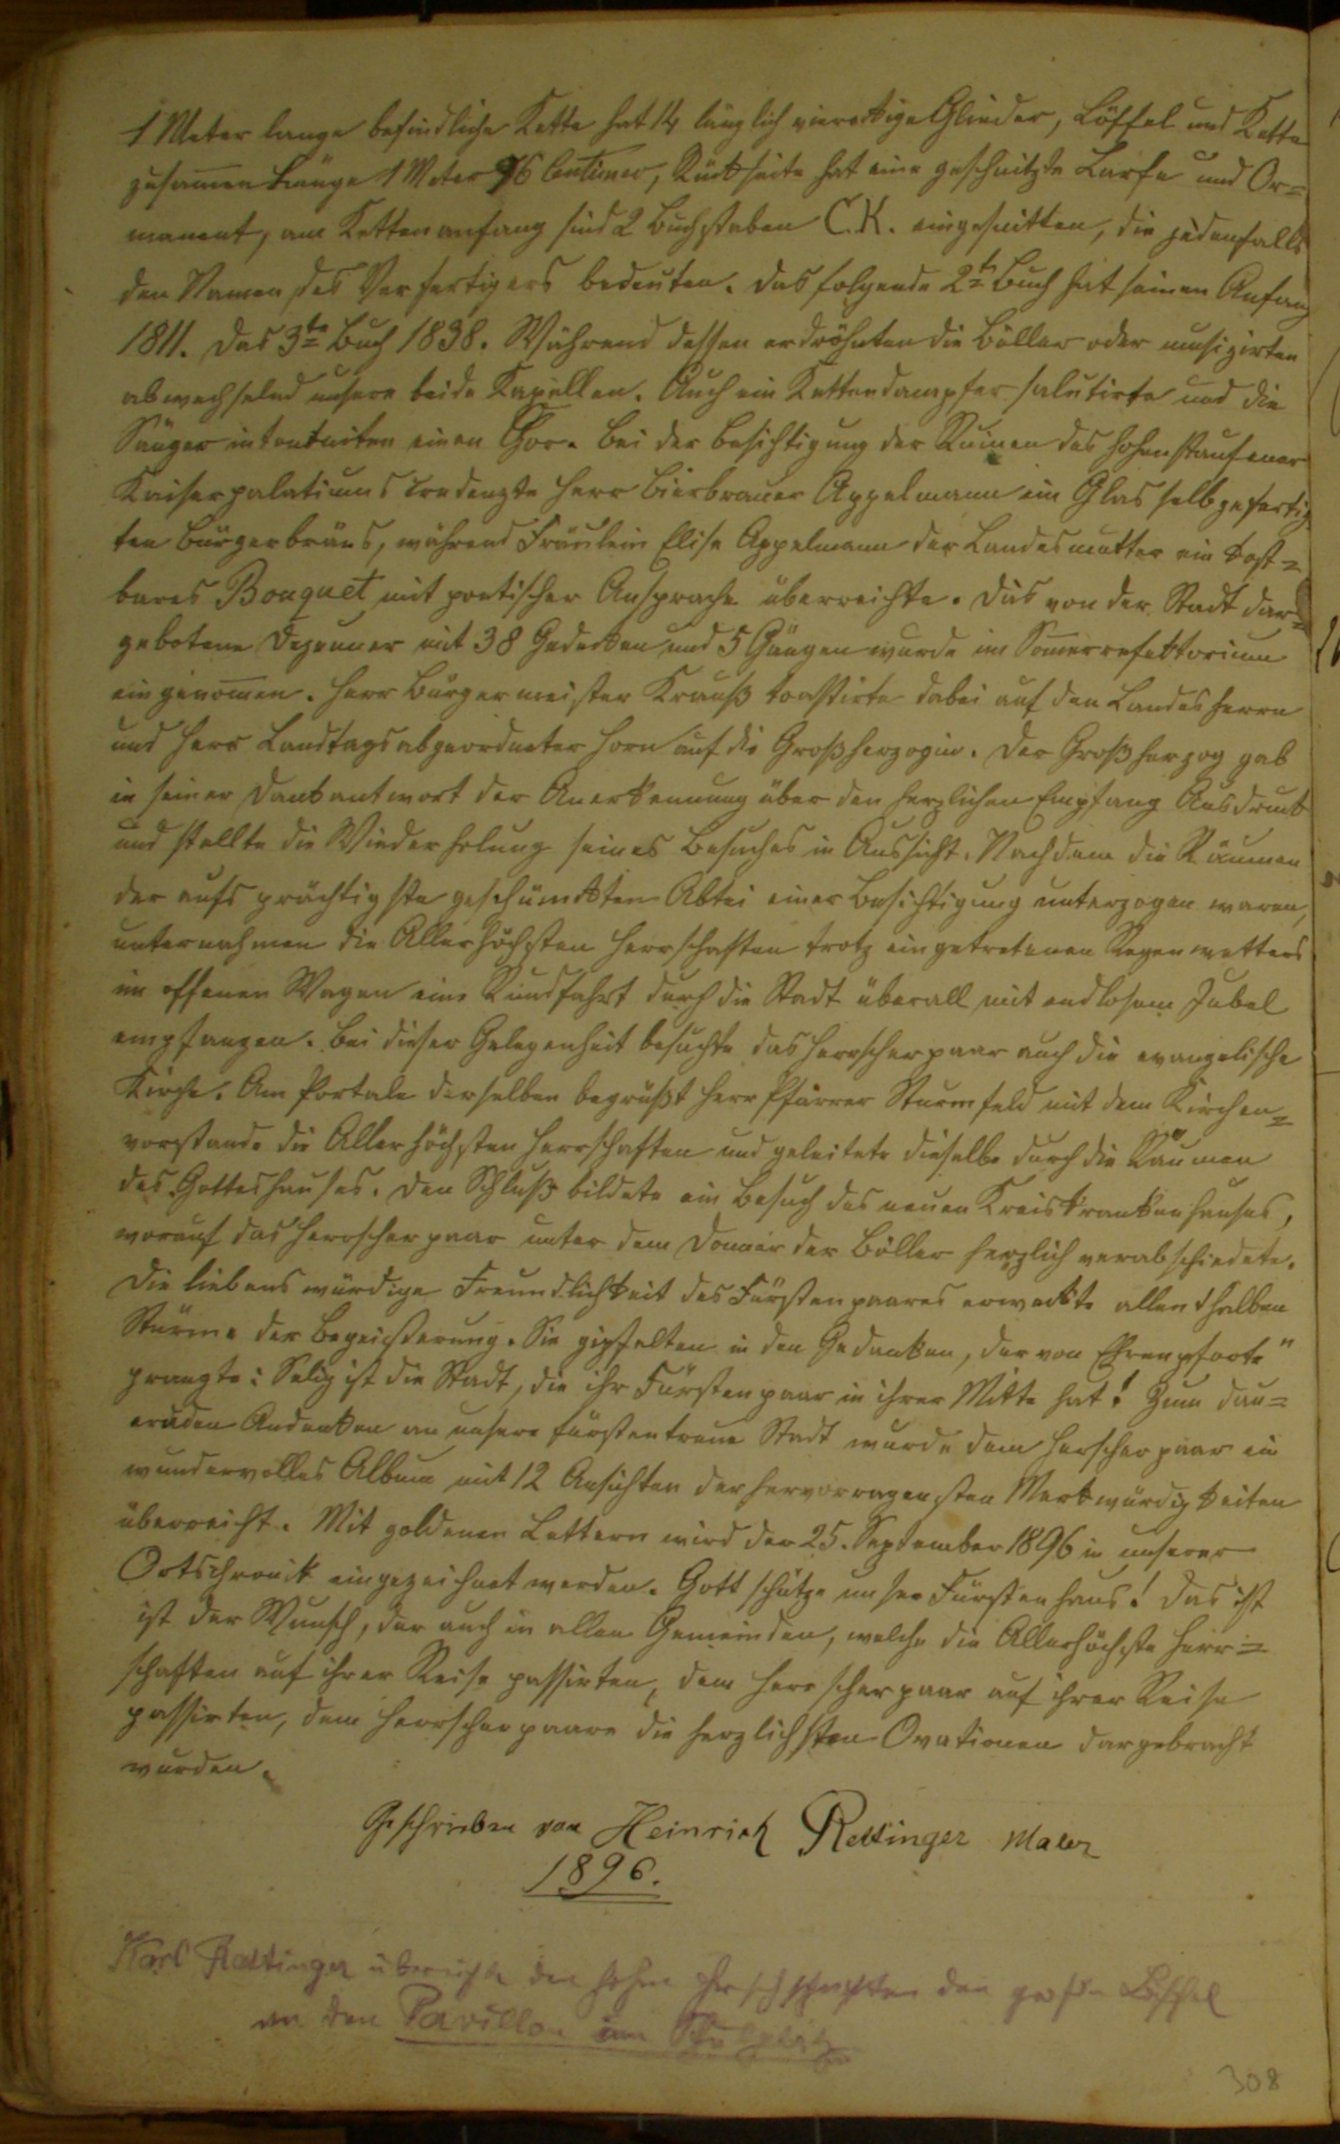 1 Meter lange befindliche Kette hat 14 länglich viereckige Glieder, Löffel und Kette
zusamen Länge 1 Meter 76 Centimer, Rückseite hat eine geschnitzte Larfe und Or=
nament, am Kettenanfang sind 2 Buchstaben C.K. eingesnitten, die jedenfalls
den Namen des Verfertigers bedeuten. Das folgende 2te Buch hat seinen Anfang
1811. Das 3te Buch 1838. Während dessen erdröhnten die Böller oder musizirten
abwechselnd unsere beide Kapellen. Auch ein Kettendampfer salutirte und die
Sänger intontniten einen Chor. Bei der Besichtigung der Ruinen des Hohenstaufener
Kaiserpalatiums credenzte Herr Bierbrauer Appelmann ein Glas selbgefertig
ten Bürgerbräus, während Fräulein Elise Appelmann der Landesmutter ein kost=
bares Bouquet mit poetischer Ansprache überreichte. Das von der Stadt dar=
gebotene Dejeuner mit 38 Gedecken und 5 Gängen wurde im Somerrefektorium
eingenomen. Herr Bürgermeister Krauß toastirte dabei auf den Landesherrn
und Herr Landtagsabgeordneter Horn auf die Großherzogin. Der Großherzog gab
in seiner Dankantwort der Anerkennung über den herzlichen Empfang Ausdruck
und stellte die Wiederholung seines Besuches in Aussicht. Nachdem die Räumen
der aufs prächtigste geschümckten Abtei einer Besichtigung unterzogen waren,
unternahmen die Allerhöchsten Herrschaften trotz eingetretenen Regenwetters
im offenen Wagen eine Rundfahrt durch die Stadt überall mit endlosem Jubel
empfangen. Bei dieser Gelegenheit besuchte das Herrscherpaar auch die evangelische
Kirche. Am Portale derselben begrüßt Herr Pfarrer Sturmfeld mit dem Kirchen=
vorstande die Allerhöchsten Herrschaften und geleitete dieselbe durch die Räumen
des Gotteshauses. Den Schluß bildete ein Besuch des neuen Kreiskrankenhauses,
worauf das Herrscherpaar unter dem Donner der Böller herzlich verabschiedete.
Die liebenswürdige Freundlichkeit des Fürstenpaares erweckte allenthalben
Stürme der Begeisterung. Sie gipfelten in den Gedanken, der von Ehrenpforte"
prangte: Selig ist die Stadt, die ihr Fürstenpaar in ihrer Mitte hat! Zum dau=
ernden Andenken an unsere fürstentreue Stadt wurde dem Herscherpaar ein
wundervolles Album mit 12 Ansichten der hervorragensten Merkwürdigkeiten
überreicht. Mit goldenen Lettern wird der 25. September 1896 in unserer
Ortschronik eingezeichnet werden. Gott schütze unser Fürstenhaus! Das ist
ist der Wunsch, der auch in allen Gemeinden, welche die Allerhöchste Herr=
schaften auf ihrer Reise passirten, dem Herrscherpaar auf ihrer Reise
passirten, dem Herrscherpaare die herzlichsten Ovationen dargebracht
wurden.
Geschrieben von Heinrich Rettinger Maler
1896.
Karl Rettinger überreichte den hohen Herschschaften den großen Löffel
an den Pavillon am
308